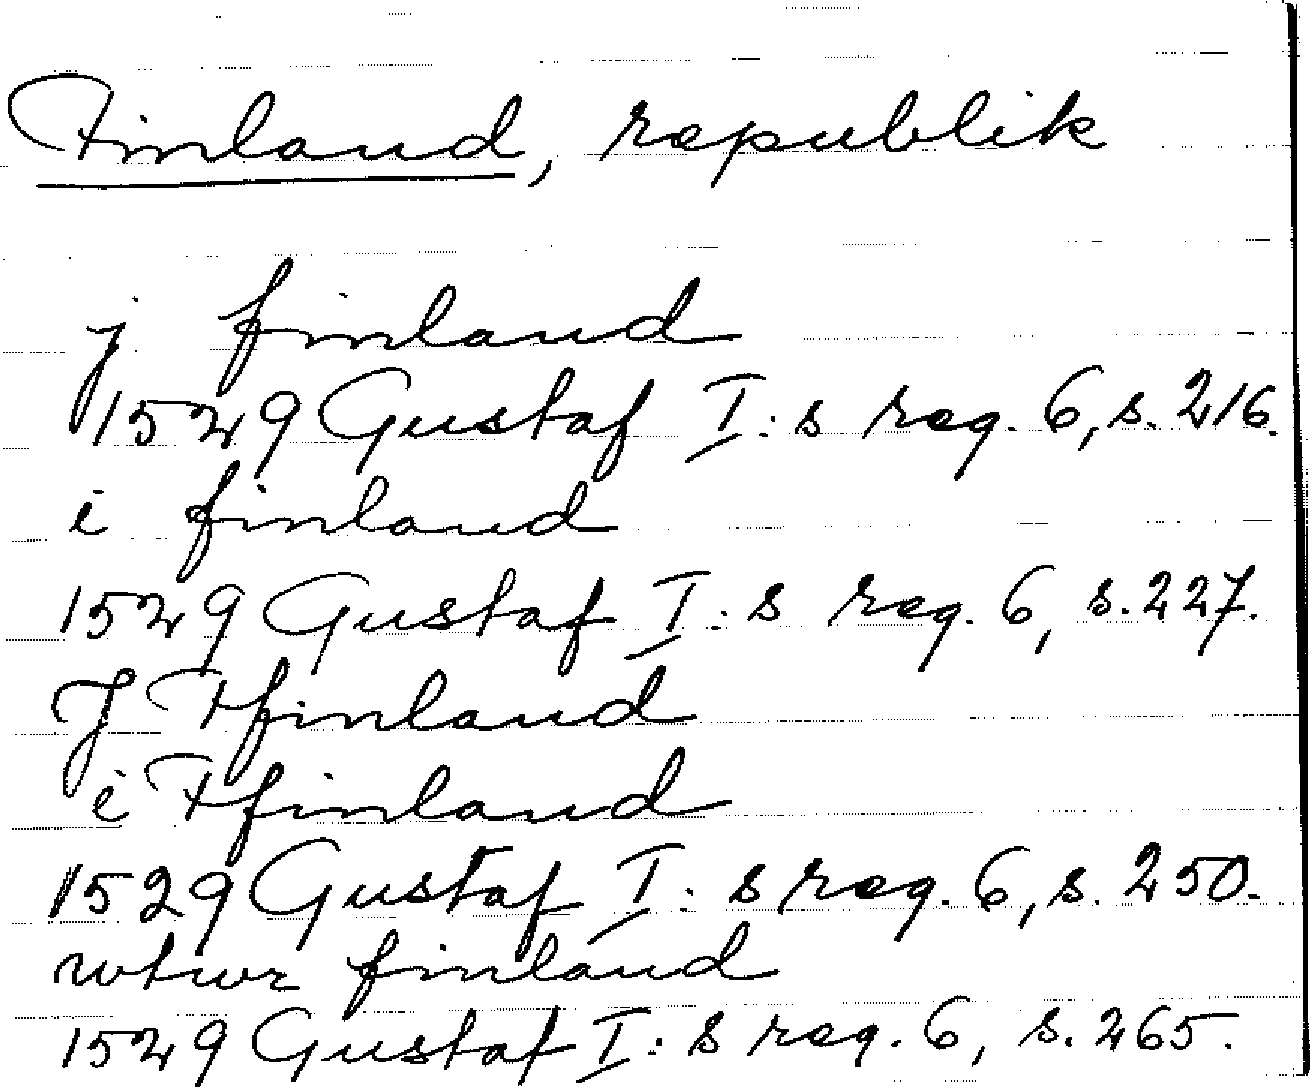 Finland, republik
j finland
1529 Gustaf I:s reg. 6, s. 216.
i finland
1529 Gustaf I:s reg. 6, s. 227.
J Ffinland
i Ffinland
1529 Gustaf I:s reg. 6, s. 250.
wtwr finland
1529 Gustaf I:s reg. 6, s. 265.